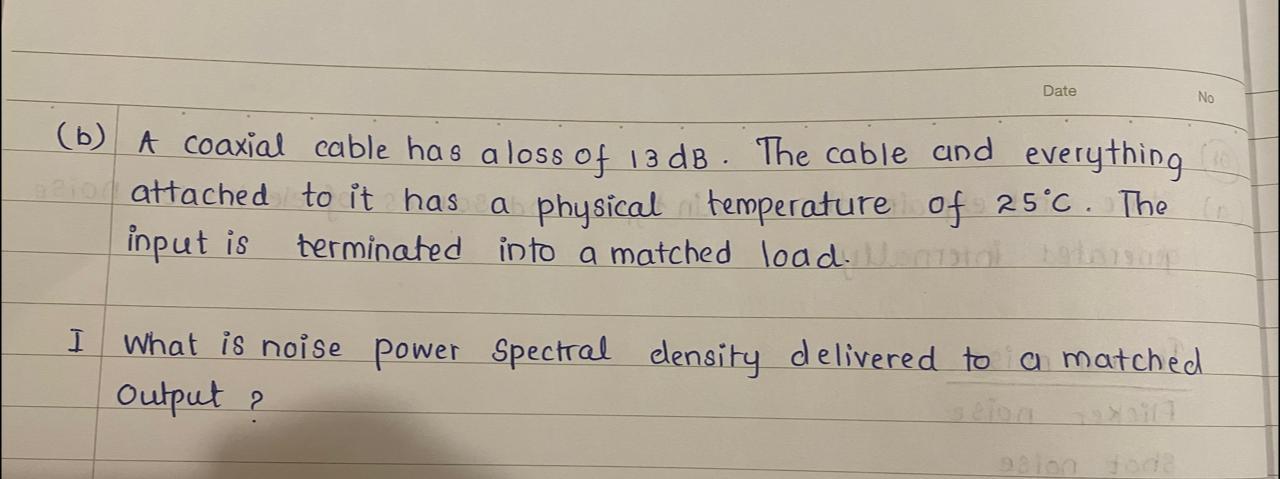 Date
No
(b) A coaxial cable has a loss of 13 dB. The cable and everything
attached to it has a physical temperature of 25°C. The
input is terminated into a matched load.
I What is noise power spectral density delivered to a matched
output ?